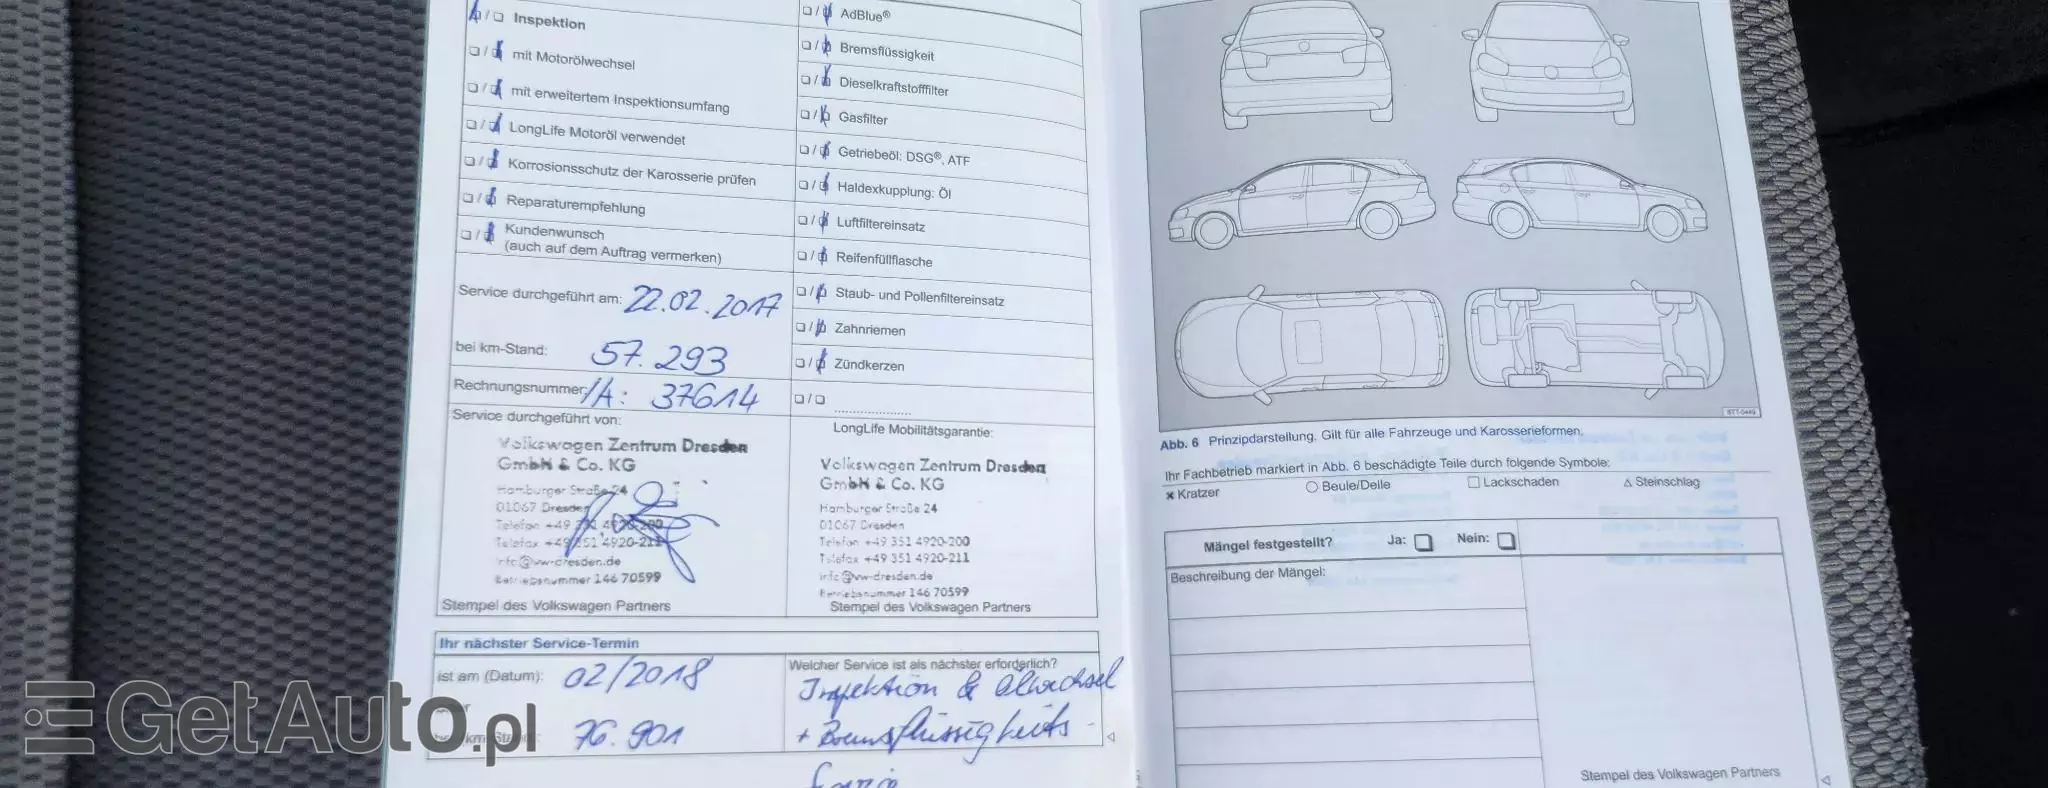 Inspektion
mit Motorölwechsel
mit erweitertem Inspektionsumfang
LongLife Motoröl verwendet
Korrosionsschutz der Karosserie prüfen
Reparaturempfehlung
Kundenwunsch
(auch auf dem Auftrag vermerken)
Service durchgeführt am: 22.02.2017
bei km-Stand: 57.293
Rechnungsnummer/A: 37614
Service durchgeführt von:
Volkswagen Zentrum Dresden
GmbH & Co. KG
Hamburger Straße 24
01067 Dresden
Telefon +49 351 4920-200
Telefax +49 351 4920-211
info@vw-dresden.de
Betriebsnummer 146 70599
Stempel des Volkswagen Partners
AdBlue®
Bremsflüssigkeit
Dieselkraftstofffilter
Gasfilter
Getriebeöl: DSG®, ATF
Haldexkupplung: Öl
Luftfiltereinsatz
Reifenfüllflasche
Staub- und Pollenfiltereinsatz
Zahnriemen
Zündkerzen
LongLife Mobilitätsgarantie:
Volkswagen Zentrum Dresden
GmbH & Co. KG
Hamburger Straße 24
01067 Dresden
Telefon +49 351 4920-200
Telefax +49 351 4920-211
info@vw-dresden.de
Betriebsnummer 146 70599
Stempel des Volkswagen Partners
Ihr nächster Service-Termin
ist am (Datum): 02/2018
76.901
Welcher Service ist als nächster erforderlich?
Inspektion & Ölwechsel
+ Bremsflüssigkeits-
GetAuto.pl
Abb. 6 Prinzipdarstellung. Gilt für alle Fahrzeuge und Karosserieformen.
Ihr Fachbetrieb markiert in Abb. 6 beschädigte Teile durch folgende Symbole:
Kratzer
Beule/Delle
Lackschaden
Steinschlag
Mängel festgestellt? Ja: Nein:
Beschreibung der Mängel:
Stempel des Volkswagen Partners